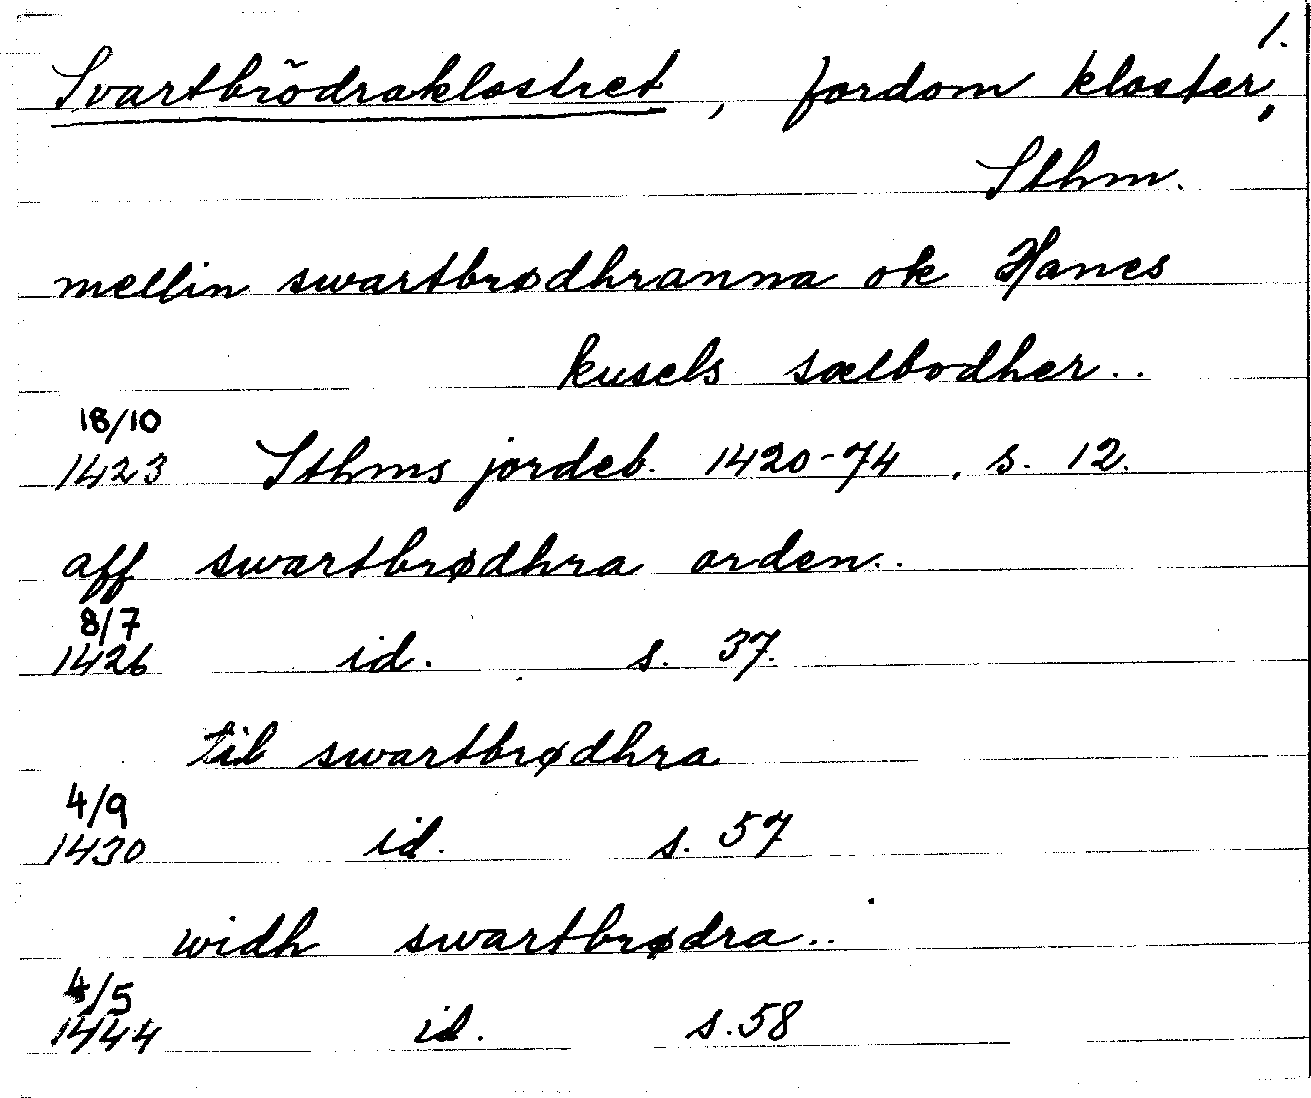 1.
Svartbrödraklostret, fordom kloster,
Sthm.
mellin swartbrødhranna ok Hanes
kusels sælbodher..
18/10
1423 Sthms jordeb. 1420-74, s. 12.
aff swartbrødhra orden..
8/7
1426 id. s. 37.
til swartbrødhra
4/9
1430 id. s. 57
widh swartbrødra..
4/5
1444 id. s. 58